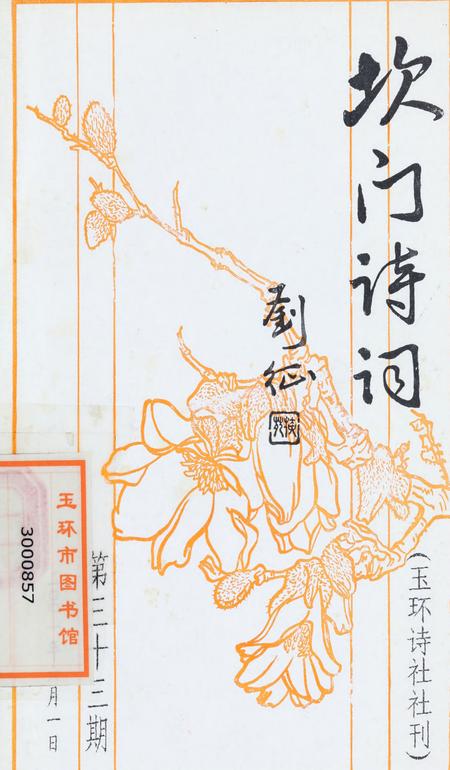 坎门诗词
劉征
(玉环诗社社刊)
第三十三期
月一日
玉环市图书馆
3000857